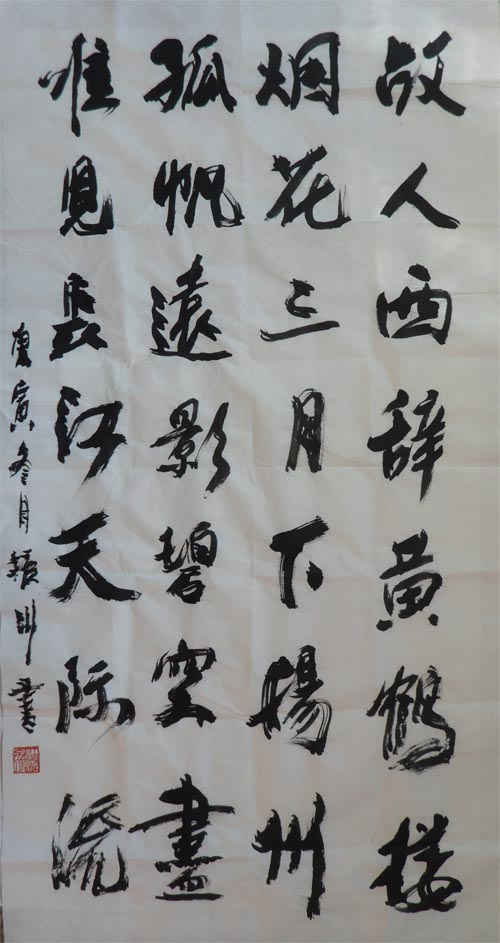 故人西辞黄鹤楼
烟花三月下揚州
孤帆遠影碧空盡
唯見長江天际流
庚寅冬月 书